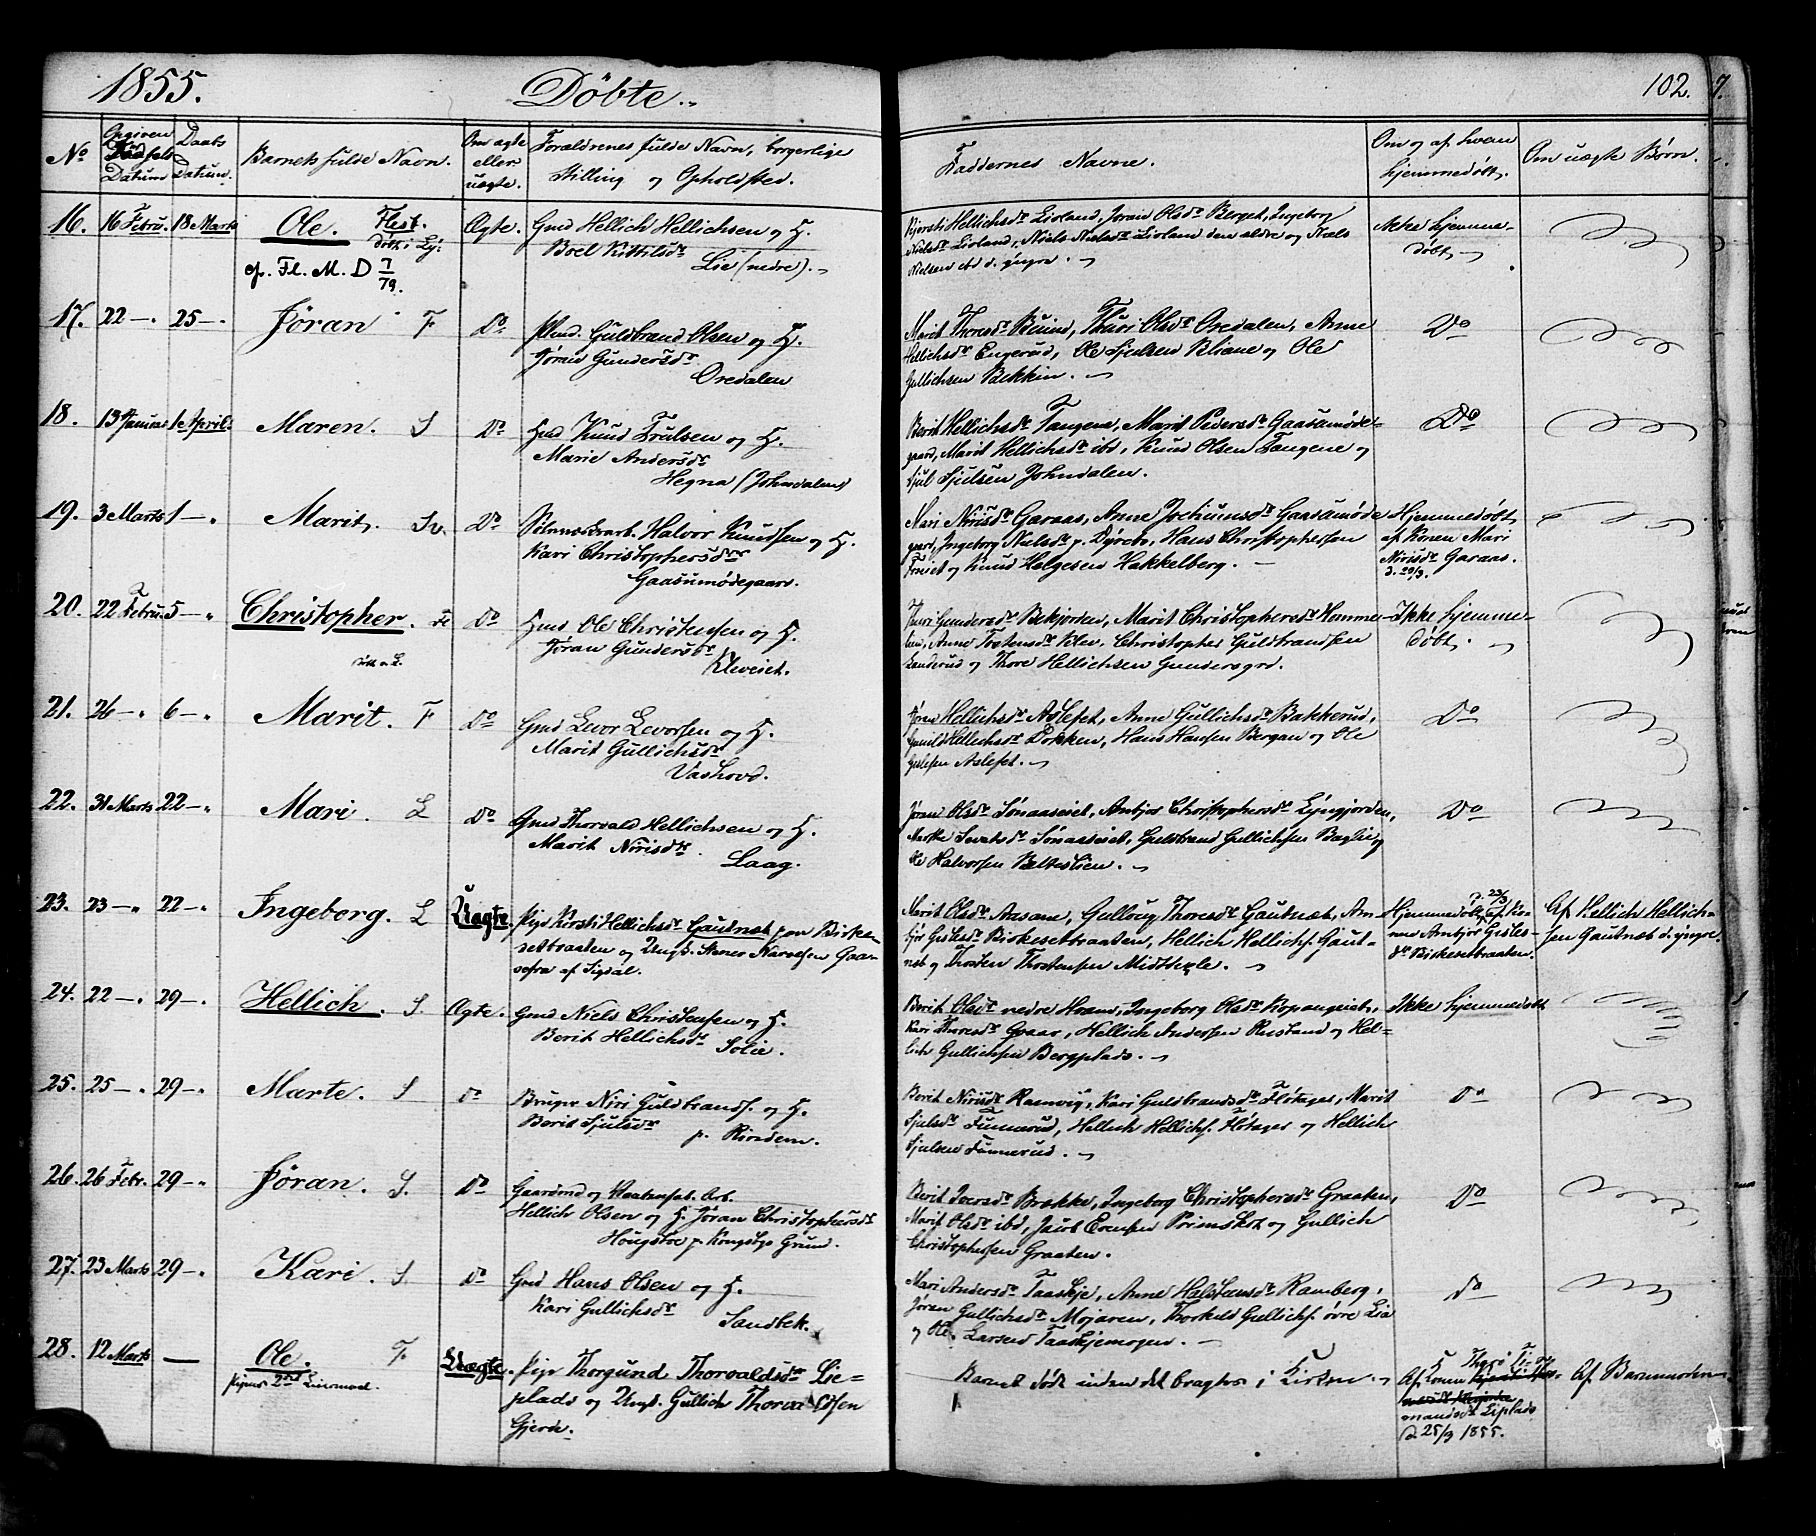 1855. Döbte. 102. 7.
No Opgiven Fødsels Datum Daabs Datum. Barnets fulde Navn. Om ægte eller uægte. Forældrenes fulde Navn, borgerlige Stilling og Opholdsted. Faddernes Navne. Om og af hvem hjemmedøbt. Om uægte Børn.
16. 16 Febru. 18 Marts Ole. Flest. Ægte. Gmd Hellich Hellichsen og H.
Boel Kittilsdr
Lie (nedre).
cfr. Fl. M. D 7/79.
Kjersti Hellichsdr Lioland, Joran Olsdr Berget, Ingeborg
Nielsdr Lioland, Niels Nielsdr Lioland den ældre og Niels
Nielsen ibd d. yngre.
Ikke hjemme-
døbt
17. 22 25 Jöran F Do Gmd. Guldbrand Olsen og H.
Jöran Gundersdr
Oredalen
Marit Thoresdr Thuri Olsdr Oredalen, Anne
Hellichsdr Engerud, Ole Sjulsen og Ole
Gullichsen Bekkin.
Do
18. 13 Januar 1 April Maren. S Do Gmd Knud Trulsen og H.
Marie Andersdr
Hegna (Johnsdalen)
Berit Hellichsdr Tangene, Marit Pedersdr Gaasumøde-
gaard, Marit Hellichsdr ibd, Knud Olsen Tangene og
Sjul Sjulsen Johndalen.
Do
19. 3 Marts 1 Marit. Sv. Do Halvor Knudsen og H.
Kari Christophersdr
Gaasumødegaard.
Mari Nirisdr Garaas, Anne Jochumsdr Gaasumøde
gaard, Ingeborg Nielsdr p. Hans Christophersen
og Knud Helgesen Hakkelberg.
Hjemmedøbt
af Konen Mari
Nirisdr Garaas.
20. 22 Febru. 5 Christopher. Fl Do Gmd Ole Christensen og H.
Jöran Gundersdr
Kleveiet.
Thuri Gundersdr Bekjorden, Marit Christophersdr Homme-
Anne Tostensdr Klev, Christopher Guldbrandsen
Landerud og Thore Hellichsen
Ikke hjemme-
døbt.
21. 26 6 Marit. F Do Gmd Levor Levorsen og H.
Marit Gullichsdr
Vashovd.
Jöran Hellichsdr Aslefet, Anne Gullichsdr Bakkerud,
Gunild Hellichsdr Dokken, Hans Hansen Bergan og Ole
Gislesen Aslefet.
Do
22. 31 Marts 22 Mari. L Do Gmd Thorvald Hellichsen og H.
Marit Nirisdr
Laag.
Jöran Olsdr Antjor Christophersdr Lyngjorden,
Guldbrand Gullichsen Baglie og
Ole Halvorsen
Do
23. 23 22 Ingeborg. L Uægte. Pige Kirsti Hellichsdr Gautnæt paa Birke-
setbraaten og Ungk. Stener Narvesen Gaa-
af Sigdal.
Marit Olsdr Aasam, Gullaug Thoresdr Gautnæt, An-
tjor Gislesdr Birkesetbraaten, Hellich Hellichs. Gaut-
næt og Thosten Thostensen
Hjemmedøbt af Ko-
nen Antjor Gisles-
dr Birkesetbraaten.
Af Hellich Hellich-
sen Gautnæt d. yngre.
24. 22 29 Hellich. S. Ægte. Gmd Niels Christensen og H.
Berit Hellichsdr
Solie.
Berit Olsdr nedre Moane, Ingeborg Olsdr
Kari Thoresdr Graar, Hellich Andersen Rustand og Hel-
lich Gullichsen Bergplads.
Ikke hjemmedøbt
25. 25 29 Marte. S do Bruger Niri Guldbrands. og H.
Berit Sjulsdr
p. Rindem.
Berit Nirisdr Ramvig, Kari Guldbrandsdr Flötager, Marit
Sjulsdr Tunnerud, Hellich Hellichs. Flötager og Hellich
Sjulsen Tunnerud.
Do
26. 26 Febr. 29 Jöran. S. Do Gaardmd og Arb.
Hellich Olsen og H. Jöran Christophersdr
Hougstoe p. Kongsbgs Grund.
Berit Iversdr Brække, Ingeborg Christophersdr Graaten,
Marit Olsdr ibd, Jacob Evensen og Gullich
Christophersen Graaten.
Do
27. 23 Marts 29 Kari. S. Do Gmd Hans Olsen og H.
Kari Gullichsdr
Sandbek.
Mari Andersdr Taaskje, Anne Halstensdr Ramberg,
Jöran Gullichsdr Mojaren, Thorkild Gullichs. øvre Lia
og Ole Larsen Taaskjemogen.
Do
28. 12 Marts Ole. F. Uægte. Pige Thorgund Thorvaldsdr Lie-
plads og Ungk. Gullich Thorvaldsen
Gjerde.
Barnet døde inden det bragtes i Kirken.
Af
Lieplads
d 25/3 1855.
Af Barnmoderen